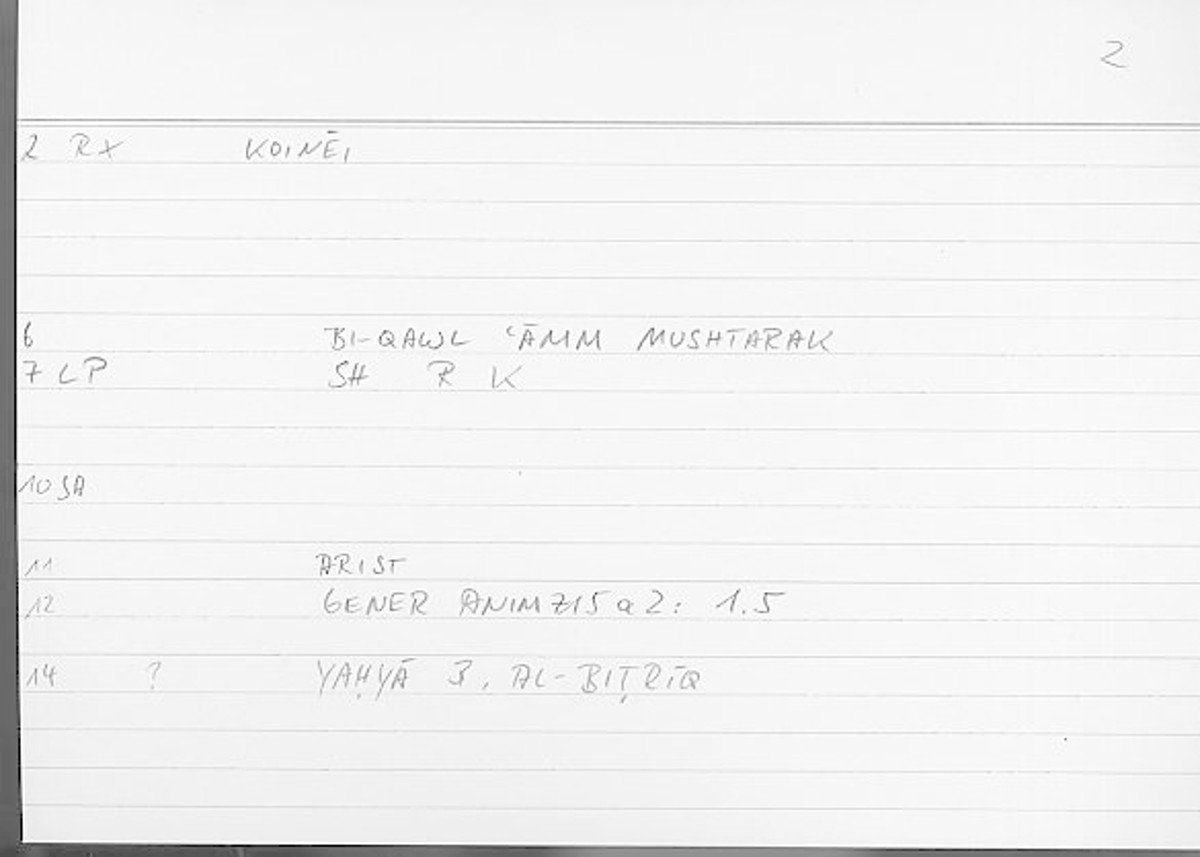 2
2 RX KOINĒI
6 BI-QAWL ʿĀMM MUSHTARAK
7 LP SH R K
10 SA
11 ARIST
12 GENER ANIM 715 a 2: 1.5
14 ? YAḤYĀ B. AL-BIṬRĪQ